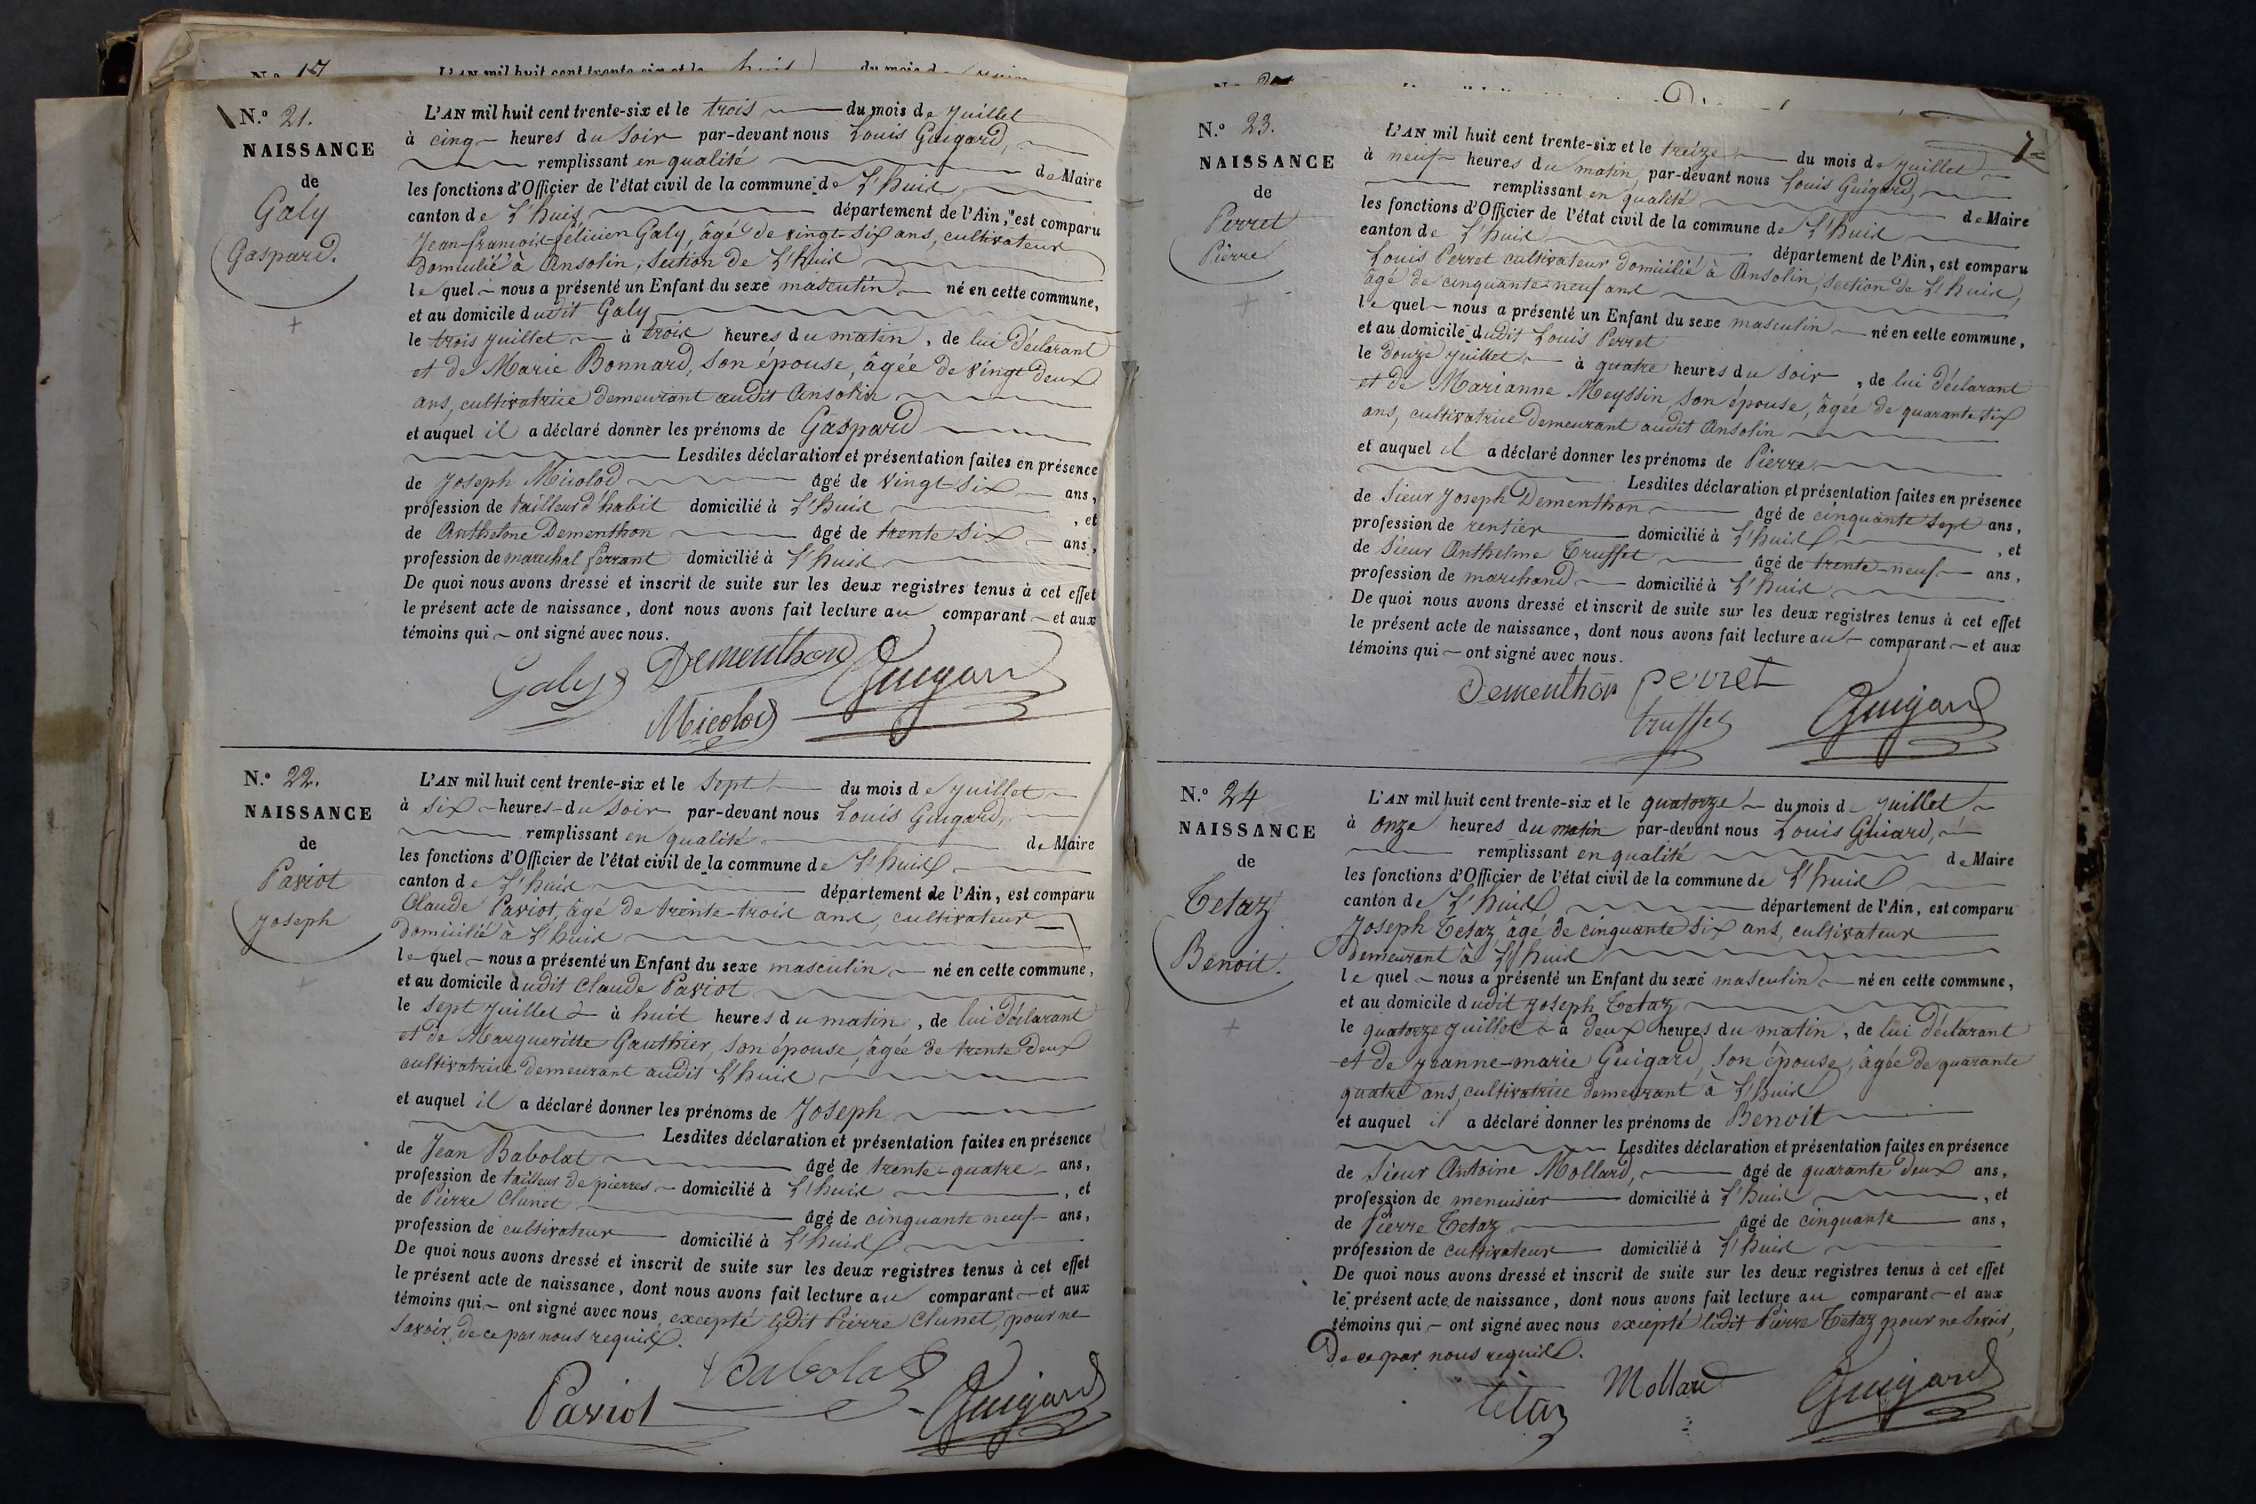 N.º 17
L'AN mil huit cent trente-six et le huit du mois de
N.º 21.
NAISSANCE
de
Galy
Gaspard.
L'AN mil huit cent trente-six et le trois du mois de Juillet
à cinq heures du soir par-devant nous Louis Guigard,
remplissant en qualité de Maire
les fonctions d'Officier de l'état civil de la commune de L'huis
canton de L'huis département de l'Ain, est comparu
Jean-françois-félicien Galy, âgé de vingt-six ans, cultivateur
domicilié à Ansolin, section de L'huis
lequel nous a présenté un Enfant du sexe masculin né en cette commune,
et au domicile dudit Galy
le trois juillet à trois heures du matin, de lui déclarant
et de Marie Bonnard, son épouse, âgée de vingt deux
ans, cultivatrice demeurant audit Ansolin
et auquel il a déclaré donner les prénoms de Gaspard
Lesdites déclaration et présentation faites en présence
de Joseph Micolod âgé de vingt-six ans,
profession de tailleur d'habit domicilié à L'huis , et
de Anthelme Dementhon âgé de trente six ans,
profession de marechal ferrant domicilié à L'huis
De quoi nous avons dressé et inscrit de suite sur les deux registres tenus à cet effet
le présent acte de naissance, dont nous avons fait lecture au comparant et aux
témoins qui ont signé avec nous.
Galy Dementhon Guigard
Micolod
N.º 22.
NAISSANCE
de
Paviot
Joseph
L'AN mil huit cent trente-six et le sept du mois de Juillet
à six heures du soir par-devant nous Louis Guigard,
remplissant en qualité de Maire
les fonctions d'Officier de l'état civil de la commune de L'huis
canton de L'huis département de l'Ain, est comparu
Claude Paviot, âgé de trente-trois ans, cultivateur
domicilié à L'huis
lequel nous a présenté un Enfant du sexe masculin né en cette commune,
et au domicile dudit Claude Paviot
le sept juillet à huit heures du matin, de lui déclarant
et de Margueritte Gauthier, son épouse, âgée de trente deux
cultivatrice demeurant audit L'huis
et auquel il a déclaré donner les prénoms de Joseph
Lesdites déclaration et présentation faites en présence
de Jean Babolat âgé de trente-quatre ans,
profession de tailleur de pierres domicilié à L'huis , et
de Pierre Clunet âgé de cinquante neuf ans,
profession de cultivateur domicilié à L'huis
De quoi nous avons dressé et inscrit de suite sur les deux registres tenus à cet effet
le présent acte de naissance, dont nous avons fait lecture au comparant et aux
témoins qui ont signé avec nous excepté ledit Pierre Clunet, pour ne
savoir, de ce par nous requis.
Babolat
Paviot Guigard
7
N.º 23.
NAISSANCE
de
Perret
Pierre
L'AN mil huit cent trente-six et le treize du mois de Juillet
à neuf heures du matin par-devant nous Louis Guigard,
remplissant en qualité de Maire
les fonctions d'Officier de l'état civil de la commune de L'huis
canton de L'huis département de l'Ain, est comparu
Louis Perret cultivateur domicilié à Ansolin, section de L'huis,
âgé de cinquante-neuf ans
lequel nous a présenté un Enfant du sexe masculin né en cette commune,
et au domicile dudit Louis Perret
le douze juillet à quatre heures du soir , de lui déclarant
et de Marianne Meyssin, son épouse, âgée de quarante six
ans, cultivatrice demeurant audit Ansolin
et auquel il a déclaré donner les prénoms de Pierre
Lesdites déclaration et présentation faites en présence
de sieur Joseph Dementhon âgé de cinquante sept ans,
profession de rentier domicilié à L'huis , et
de sieur Anthelme Truffet âgé de trente-neuf ans,
profession de marchand domicilié à L'huis
De quoi nous avons dressé et inscrit de suite sur les deux registres tenus à cet effet
le présent acte de naissance, dont nous avons fait lecture au comparant et aux
témoins qui ont signé avec nous.
Dementhon perret
truffet Guigard
N.º 24
NAISSANCE
de
Tetaz
Benoit.
L'AN mil huit cent trente-six et le quatorze du mois de Juillet
à onze heures du matin par-devant nous Louis Guiard,
remplissant en qualité de Maire
les fonctions d'Officier de l'état civil de la commune de L'huis
canton de L'huis département de l'Ain, est comparu
Joseph Tetaz, âgé de cinquante six ans, cultivateur
demeurant à L'huis
lequel nous a présenté un Enfant du sexe masculin né en cette commune,
et au domicile dudit Joseph Tetaz
le quatorze juillet à deux heures du matin, de lui déclarant
et de Jeanne-marie Guigard, son épouse, âgée de quarante
quatre ans, cultivatrice demeurant à L'huis
et auquel il a déclaré donner les prénoms de Benoit
Lesdites déclaration et présentation faites en présence
de sieur Antoine Mollard, âgé de quarante deux ans,
profession de menuisier domicilié à L'huis , et
de Pierre Tetaz âgé de cinquante ans,
profession de cultivateur domicilié à L'huis
De quoi nous avons dressé et inscrit de suite sur les deux registres tenus à cet effet
le présent acte de naissance, dont nous avons fait lecture au comparant et aux
témoins qui ont signé avec nous excepté ledit Pierre Tetaz pour ne savoir,
de ce par nous requis.
tetaz Mollard Guigard